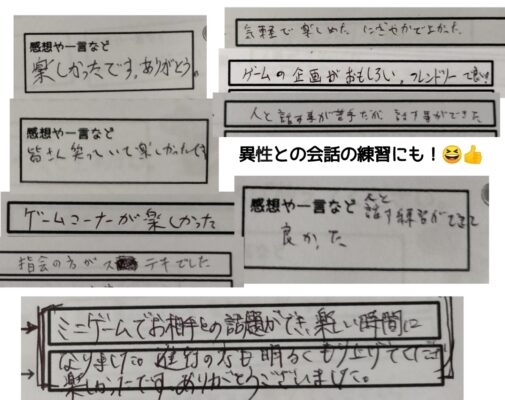 感想や一言など
楽しかったです。ありがとう。
気軽で楽しめた にぎやかでよかった
ゲームの企画がおもしろい。フレンドリーで良い
人と話す事が苦手だが 話す事ができた
感想や一言など
皆さん笑っていて楽しかったです
異性との会話の練習にも！😆👍
ゲームコーナーが楽しかった
感想や一言など 人と
話す練習ができて
良かった
指会の方がステキでした
ミニゲームでお相手との話題ができ、楽しい時間に
なりました。進行の方も明るくもり上げてくださ
楽しかったです。ありがとうございました。